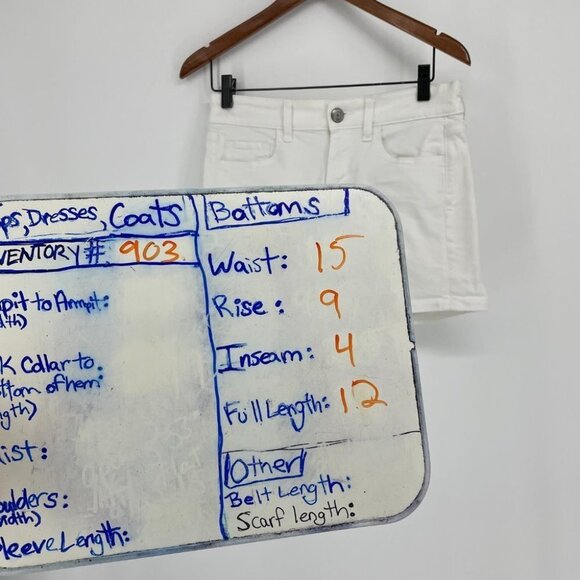 ps, Dresses, Coats
VENTORY# 903
pit to Armpit:
K Collar to
ttom of hem
gth)
ist:
oulders:
leeve Length:
Bottoms
Waist: 15
Rise: 9
Inseam: 4
Full Length: 12
Other
Belt Length:
Scarf length: